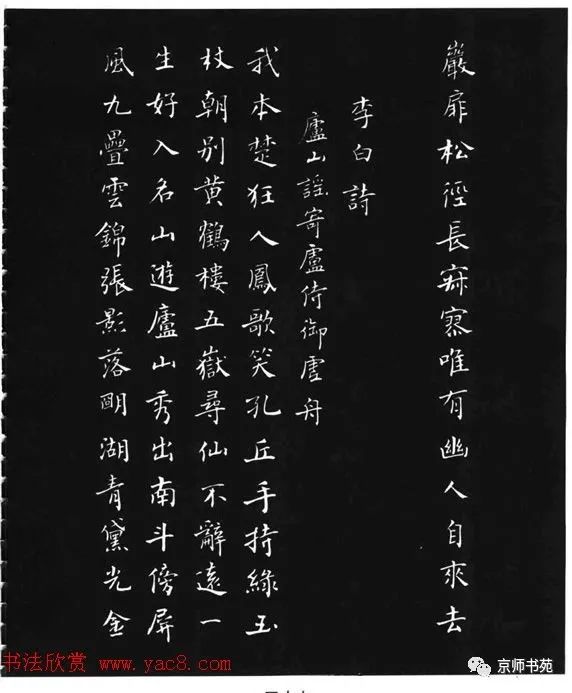 巖扉松徑長寂寥唯有幽人自來去
李白詩
廬山謠寄盧侍御虛舟
我本楚狂人鳳歌笑孔丘手持綠玉
杖朝別黃鶴樓五嶽尋仙不辭遠一
生好入名山遊廬山秀出南斗傍屏
風九疊雲錦張影落明湖青黛光金
书法欣赏 www.yac8.com
京师书苑